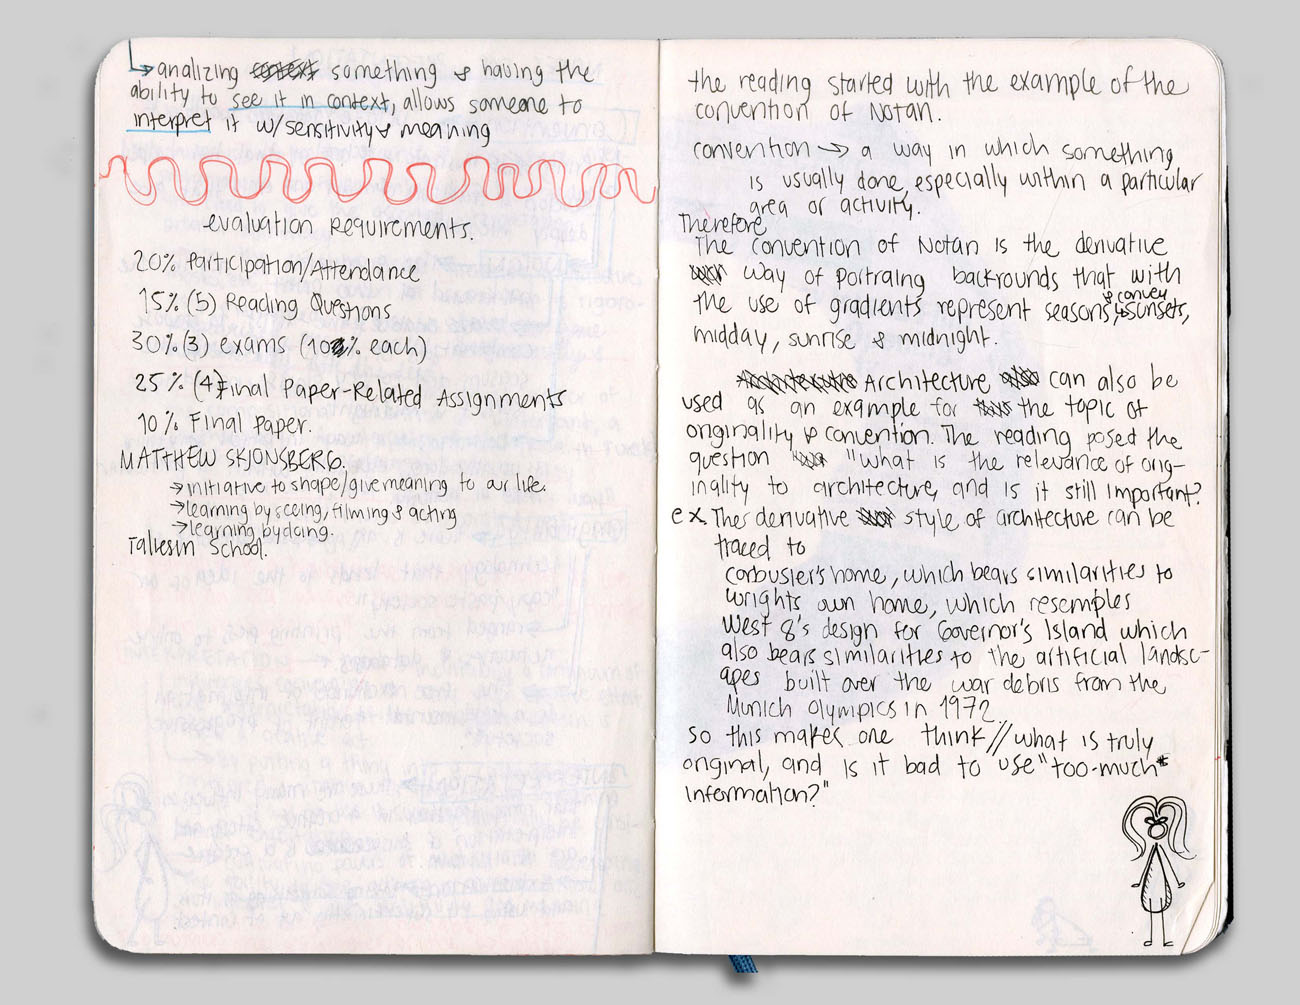 analizing something & having the
ability to see it in context, allows someone to
interpret it w/sensitivity & meaning
evaluation requirements.
20% Participation/Attendance
15% (5) Reading Questions
30% (3) exams (10% each)
25% (4) Final Paper-Related Assignments
10% Final Paper.
MATTHEW SKJONSBERG.
→ initiative to shape/give meaning to our life.
→ learning by seeing, filming & acting
→ learning by doing.
Taliesin School.
the reading started with the example of the
convention of Notan.
convention → a way in which something
is usually done, especially within a particular
area or activity.
Therefore
The convention of Notan is the derivative
way of portraing backrounds that with
& convey
the use of gradients represent seasons, sunsets,
midday, sunrise & midnight.
Architecture can also be
used as an example for the topic of
originality & convention. The reading posed the
question "what is the relevance of orig-
inality to architecture, and is it still important?
ex. Thes derivative style of architecture can be
traced to
Corbusier's home, which bears similarities to
Wrights own home, which resemples
West 8's design for Governor's Island which
also bears similarities to the artificial landsc-
apes built over the war debris from the
Munich olympics in 1972
so this makes one think // what is truly
original, and is it bad to use "too-much
information?"